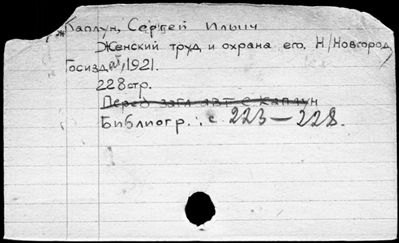 Каплун, Сергей Ильич
Женский труд и охрана его. Н/Новгород
Госиздат, 1921.
228 стр.
Перед загл. авт. С. Каплун
Библиогр.: с. 223—228.